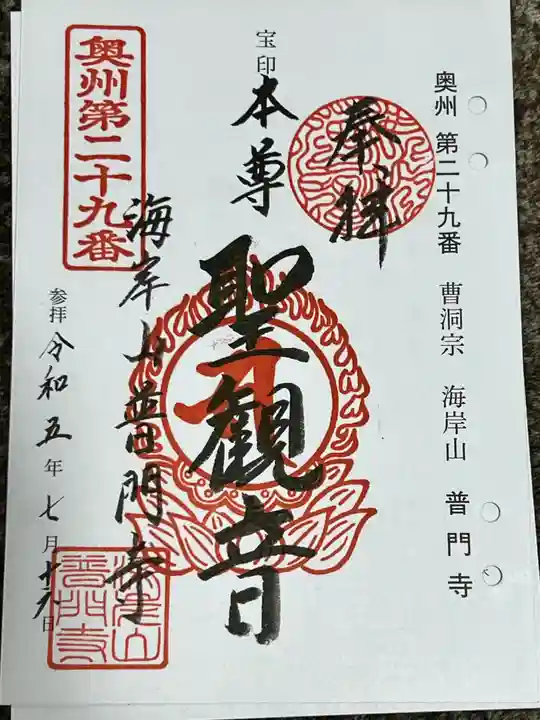 奥州 第二十九番 曹洞宗 海岸山 普門寺
奉拝
宝印
本尊
聖観音
海岸山普門寺
奥州第二十九番
参拝 令和五年七月十六日
海岸山
普門寺